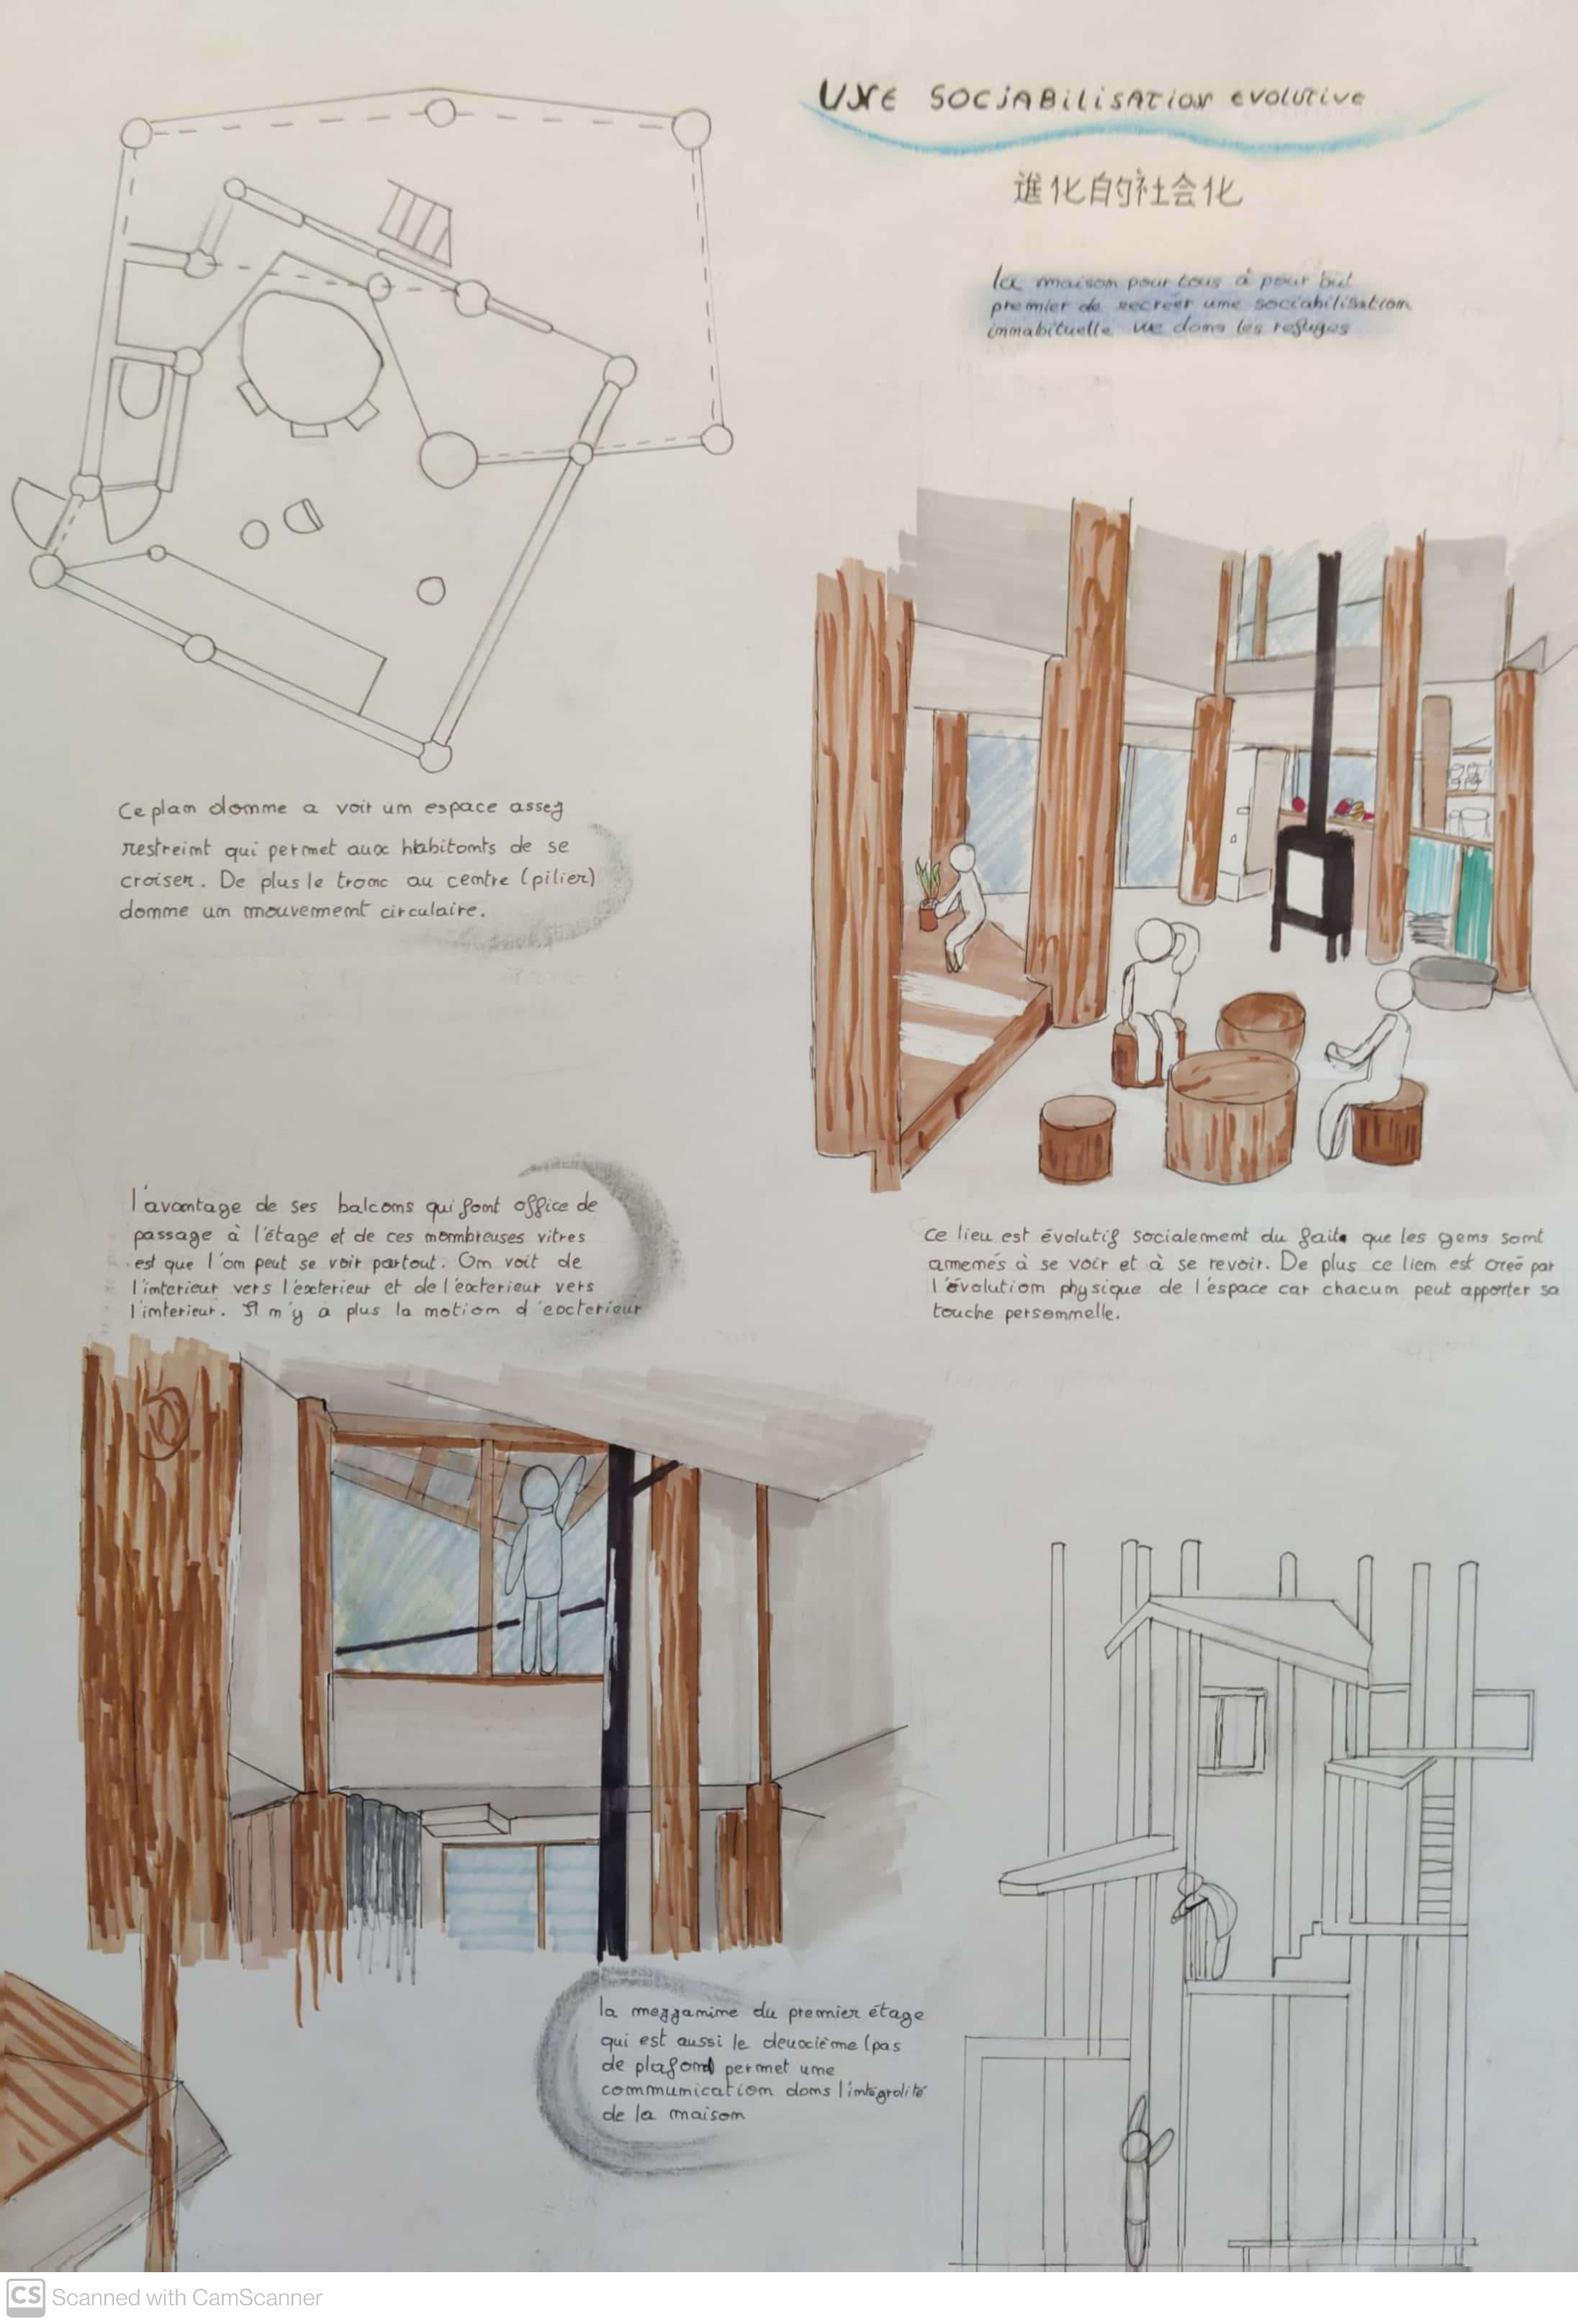 UNE SOCIABILISATION EVOLUTIVE
進化的社会化
la maison pour tous à pour but
premier de recréer une sociabilisation
innabituelle vue dans les refuges
Ce plan donne a voir un espace assez
restreint qui permet aux habitants de se
croiser. De plus le tronc au centre (pilier)
donne un mouvement circulaire.
l'avantage de ses balcons qui font office de
passage à l'étage et de ces nombreuses vitres
est que l'on peut se voir partout. On voit de
l'interieur vers l'exterieur et de l'exterieur vers
l'interieur. Il n'y a plus la notion d'exterieur
Ce lieu est évolutif socialement du fait que les gens sont
amenés à se voir et à se revoir. De plus ce lien est creé par
l'évolution physique de l'espace car chacun peut apporter sa
touche personnelle.
la mezzanine du premier étage
qui est aussi le deuxième (pas
de plafond permet une
communication dans l'intégralité
de la maison
CS Scanned with CamScanner